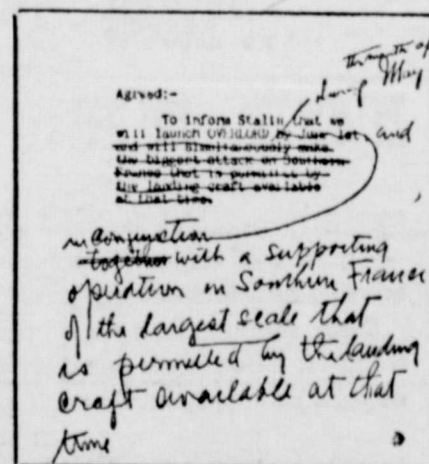 the month of
during May
Agreed:-
To inform Stalin that we
will launch OVERLORD by June 1st, and
and will simultaneously make
the biggest attack on Southern
France that is permitted by
the landing craft available
at that time.
in conjunction
together with a supporting
operation in Southern France
of the largest scale that
is permitted by the landing
craft available at that
time